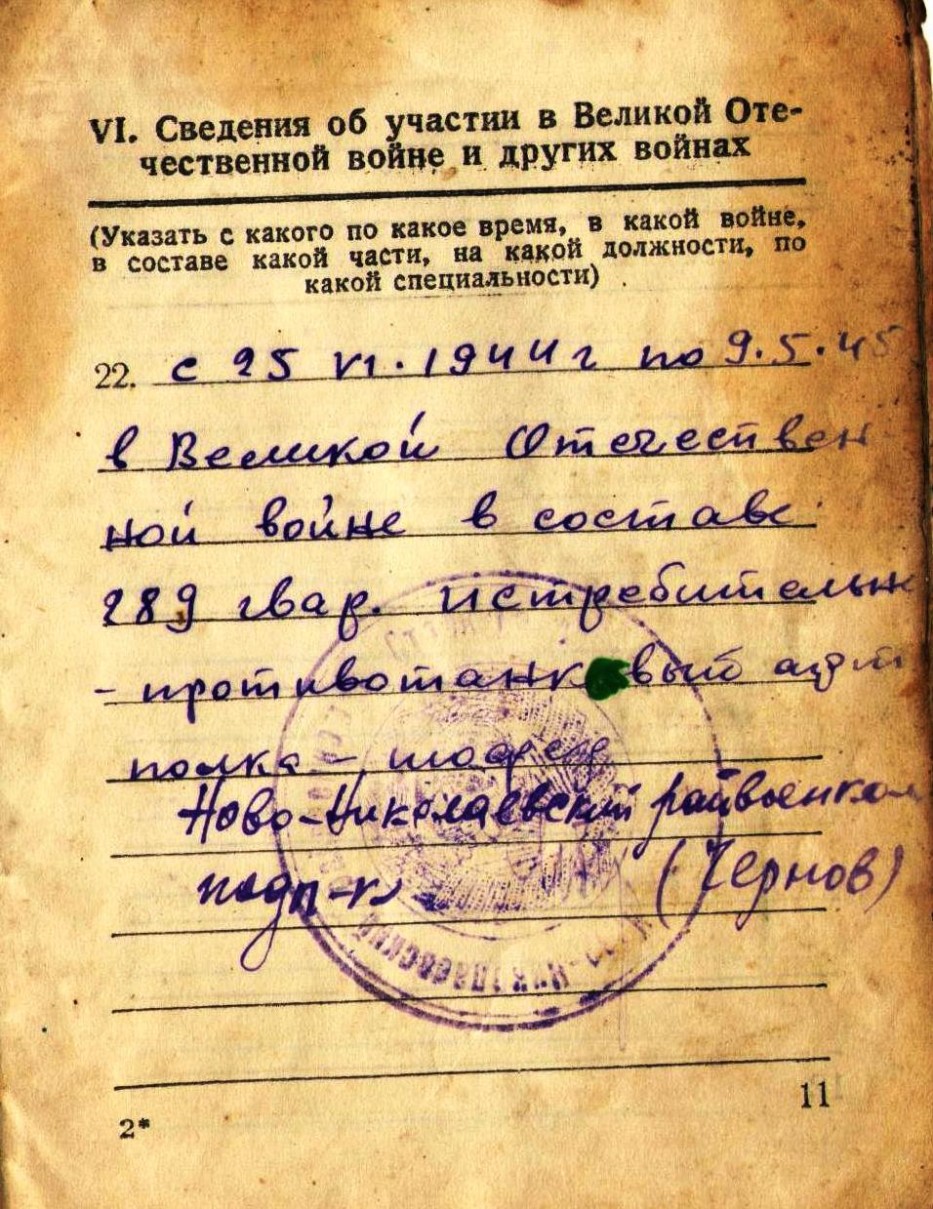 VI. Сведения об участии в Великой Оте-
чественной войне и других войнах
(Указать с какого по какое время, в какой войне,
в составе какой части, на какой должности, по
какой специальности)
22. с 25 VI. 1944 г по 9.5.45
в Великой Отечествен-
ной войне в составе
289 гвар. истребительн
- противотанковый арт
полка – шофер
Ново-Николаевский райвоенком
подп-к (Чернов)
Николаевский
11
2*